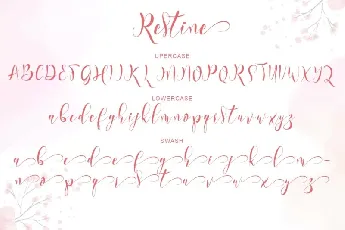 Restine
UPERCASE
ABCDEFGHIJKLMNOPQRSTUVWXYZ
LOWERCASE
abcdefghijklmnopqrstuvwxyz
SWASH
a b c d e f g h i j k l m
n o p q r s t u v w x y z